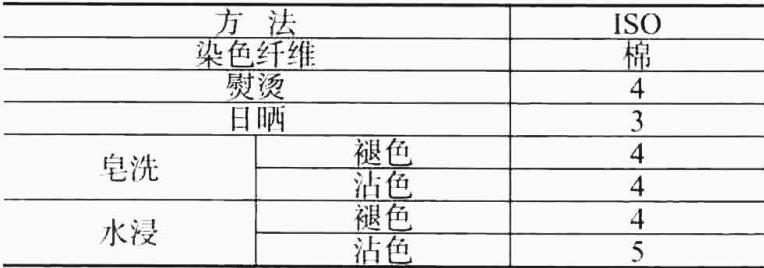 方 法 ISO
染色纤维 棉
熨烫 4
日晒 3
皂洗 褪色 4
沾色 4
水浸 褪色 4
沾色 5